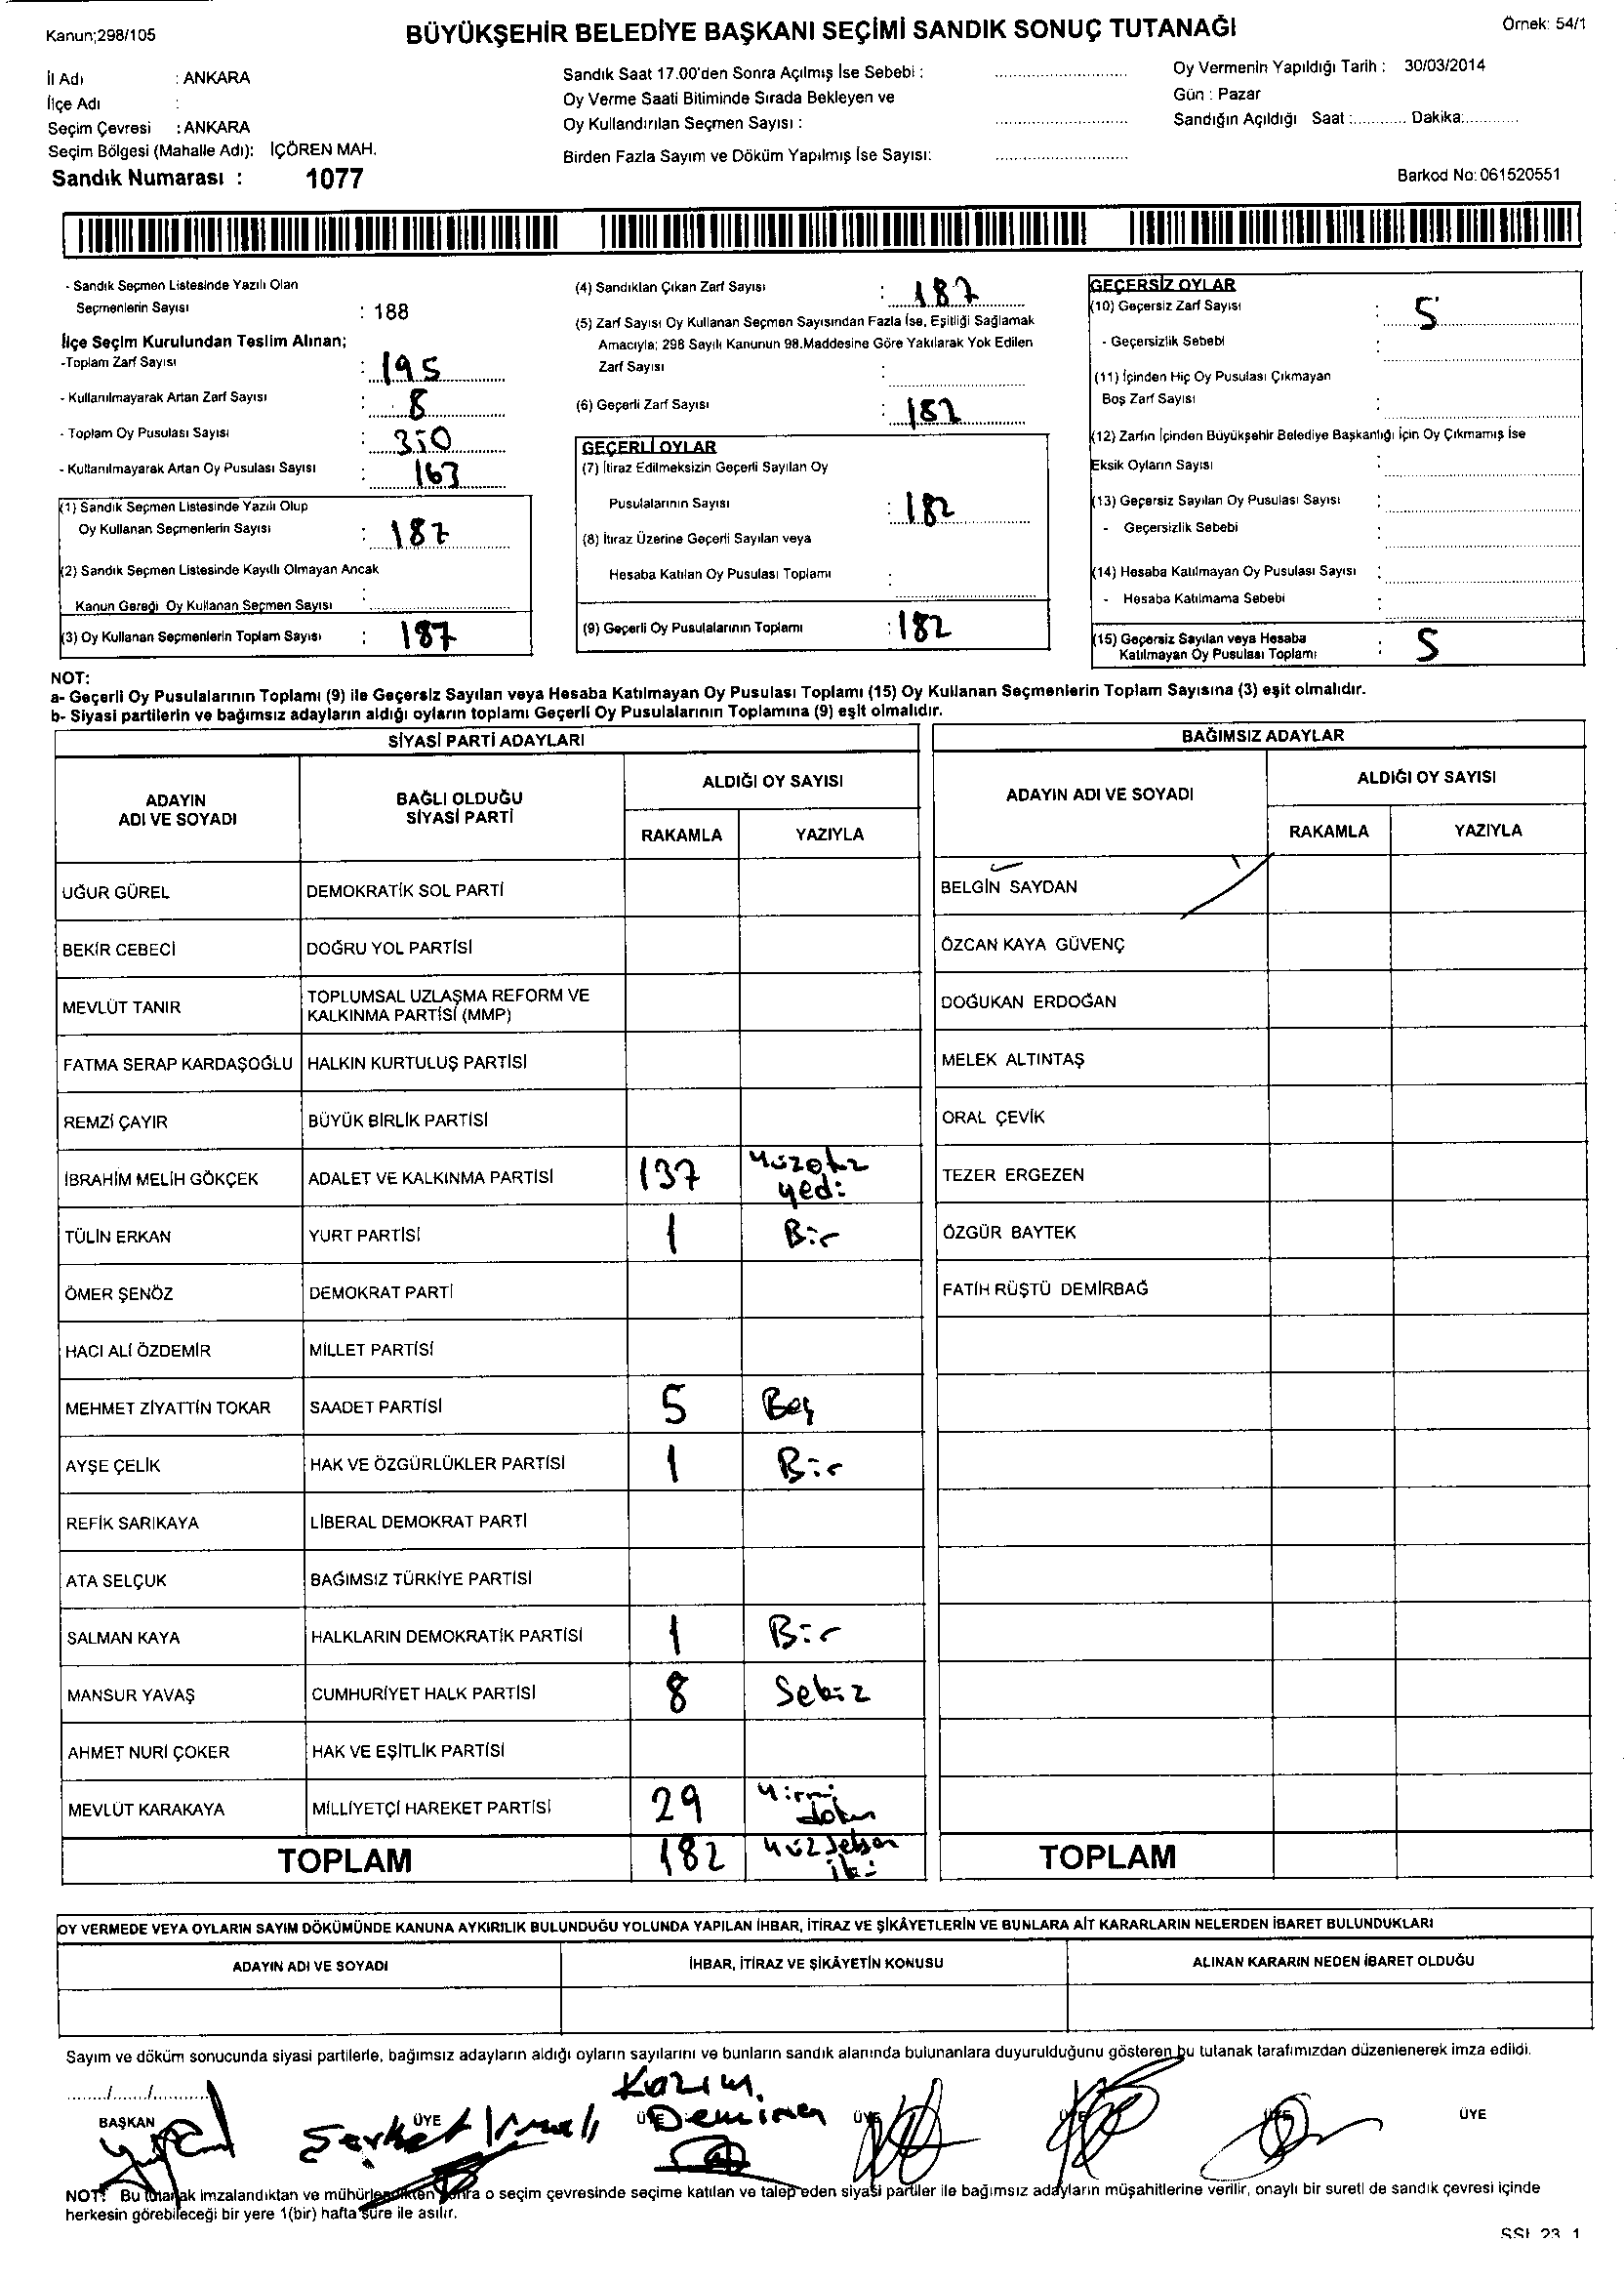 Kanun;298/105
BÜYÜKŞEHİR BELEDİYE BAŞKANI SEÇİMİ SANDIK SONUÇ TUTANAĞI
Örnek: 54/1
İl Adı : ANKARA
İlçe Adı :
Seçim Çevresi : ANKARA
Seçim Bölgesi (Mahalle Adı): İÇÖREN MAH.
Sandık Numarası : 1077
Sandık Saat 17.00'den Sonra Açılmış İse Sebebi :
Oy Verme Saati Bitiminde Sırada Bekleyen ve
Oy Kullandırılan Seçmen Sayısı :
Birden Fazla Sayım ve Döküm Yapılmış İse Sayısı:
Oy Vermenin Yapıldığı Tarih : 30/03/2014
Gün : Pazar
Sandığın Açıldığı Saat :............ Dakika:............
Barkod No: 061520551
- Sandık Seçmen Listesinde Yazılı Olan
Seçmenlerin Sayısı : 188
İlçe Seçim Kurulundan Teslim Alınan;
-Toplam Zarf Sayısı : 195
- Kullanılmayarak Artan Zarf Sayısı : 8
- Toplam Oy Pusulası Sayısı : 350
- Kullanılmayarak Artan Oy Pusulası Sayısı : 163
(1) Sandık Seçmen Listesinde Yazılı Olup
Oy Kullanan Seçmenlerin Sayısı : 187
(2) Sandık Seçmen Listesinde Kayıtlı Olmayan Ancak
Kanun Gereği Oy Kullanan Seçmen Sayısı :
(3) Oy Kullanan Seçmenlerin Toplam Sayısı : 187
(4) Sandıktan Çıkan Zarf Sayısı : 187
(5) Zarf Sayısı Oy Kullanan Seçmen Sayısından Fazla İse, Eşitliği Sağlamak
Amacıyla; 298 Sayılı Kanunun 98.Maddesine Göre Yakılarak Yok Edilen
Zarf Sayısı :
(6) Geçerli Zarf Sayısı : 182
GEÇERLİ OYLAR
(7) İtiraz Edilmeksizin Geçerli Sayılan Oy
Pusulalarının Sayısı : 182
(8) İtiraz Üzerine Geçerli Sayılan veya
Hesaba Katılan Oy Pusulası Toplamı :
(9) Geçerli Oy Pusulalarının Toplamı : 182
GEÇERSİZ OYLAR
(10) Geçersiz Zarf Sayısı : 5
- Geçersizlik Sebebi :
(11) İçinden Hiç Oy Pusulası Çıkmayan
Boş Zarf Sayısı :
(12) Zarfın İçinden Büyükşehir Belediye Başkanlığı İçin Oy Çıkmamış İse
Eksik Oyların Sayısı :
(13) Geçersiz Sayılan Oy Pusulası Sayısı :
- Geçersizlik Sebebi :
(14) Hesaba Katılmayan Oy Pusulası Sayısı :
- Hesaba Katılmama Sebebi :
(15) Geçersiz Sayılan veya Hesaba
Katılmayan Oy Pusulası Toplamı : 5
NOT:
a- Geçerli Oy Pusulalarının Toplamı (9) ile Geçersiz Sayılan veya Hesaba Katılmayan Oy Pusulası Toplamı (15) Oy Kullanan Seçmenlerin Toplam Sayısına (3) eşit olmalıdır.
b- Siyasi partilerin ve bağımsız adayların aldığı oyların toplamı Geçerli Oy Pusulalarının Toplamına (9) eşit olmalıdır.
SİYASİ PARTİ ADAYLARI
ADAYIN ADI VE SOYADI
BAĞLI OLDUĞU SİYASİ PARTİ
ALDIĞI OY SAYISI
RAKAMLA YAZIYLA
UĞUR GÜREL DEMOKRATİK SOL PARTİ
BEKİR CEBECİ DOĞRU YOL PARTİSİ
MEVLÜT TANIR TOPLUMSAL UZLAŞMA REFORM VE
KALKINMA PARTİSİ (MMP)
FATMA SERAP KARDAŞOĞLU HALKIN KURTULUŞ PARTİSİ
REMZİ ÇAYIR BÜYÜK BİRLİK PARTİSİ
İBRAHİM MELİH GÖKÇEK ADALET VE KALKINMA PARTİSİ 137 yüzotz
yedi
TÜLİN ERKAN YURT PARTİSİ 1 Bir
ÖMER ŞENÖZ DEMOKRAT PARTİ
HACI ALİ ÖZDEMİR MİLLET PARTİSİ
MEHMET ZİYATTİN TOKAR SAADET PARTİSİ 5 Beş
AYŞE ÇELİK HAK VE ÖZGÜRLÜKLER PARTİSİ 1 Bir
REFİK SARIKAYA LİBERAL DEMOKRAT PARTİ
ATA SELÇUK BAĞIMSIZ TÜRKİYE PARTİSİ
SALMAN KAYA HALKLARIN DEMOKRATİK PARTİSİ 1 Bir
MANSUR YAVAŞ CUMHURİYET HALK PARTİSİ 8 Sekiz
AHMET NURİ ÇOKER HAK VE EŞİTLİK PARTİSİ
MEVLÜT KARAKAYA MİLLİYETÇİ HAREKET PARTİSİ 29 yirmi
dokuz
TOPLAM 182 yüzseksen
iki
BAĞIMSIZ ADAYLAR
ADAYIN ADI VE SOYADI
ALDIĞI OY SAYISI
RAKAMLA YAZIYLA
BELGİN SAYDAN
ÖZCAN KAYA GÜVENÇ
DOĞUKAN ERDOĞAN
MELEK ALTINTAŞ
ORAL ÇEVİK
TEZER ERGEZEN
ÖZGÜR BAYTEK
FATİH RÜŞTÜ DEMİRBAĞ
TOPLAM
OY VERMEDE VEYA OYLARIN SAYIM DÖKÜMÜNDE KANUNA AYKIRILIK BULUNDUĞU YOLUNDA YAPILAN İHBAR, İTİRAZ VE ŞİKÂYETLERİN VE BUNLARA AİT KARARLARIN NELERDEN İBARET BULUNDUKLARI
ADAYIN ADI VE SOYADI İHBAR, İTİRAZ VE ŞİKÂYETİN KONUSU ALINAN KARARIN NEDEN İBARET OLDUĞU
Sayım ve döküm sonucunda siyasi partilerle, bağımsız adayların aldığı oyların sayılarını ve bunların sandık alanında bulunanlara duyurulduğunu gösteren bu tutanak tarafımızdan düzenlenerek imza edildi.
......../......./............
BAŞKAN ÜYE ÜYE ÜYE ÜYE ÜYE ÜYE
Kazım
NOT: Bu tutanak imzalandıktan ve mühürlendikten sonra o seçim çevresinde seçime katılan ve talep eden siyasi partiler ile bağımsız adayların müşahitlerine verilir, onaylı bir sureti de sandık çevresi içinde
herkesin görebileceği bir yere 1(bir) hafta süre ile asılır.